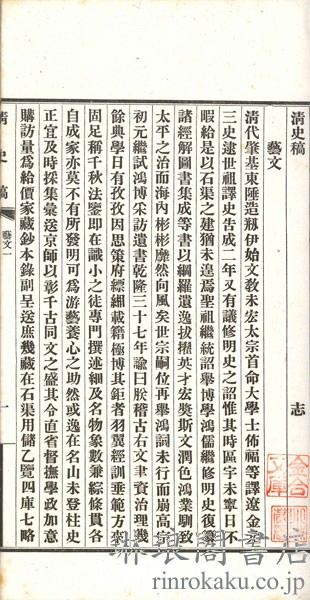 清史稿 志
藝文
清代肇基東陲造刱伊始文敎未宏太宗首命大學士希福等譯遼金元
三史逮世祖譯史吿成二年又有議修明史之詔惟其時區宇未寧日不
暇給是以石渠之建猶未遑焉聖祖繼統詔舉博學鴻儒繼修明史復纂
諸經解圖書集成等書以網羅遺逸拔擢英才宏奬斯文潤色鴻業馴致
太平之治而海內彬彬靡然向風矣世宗嗣位再舉鴻詞未行而崩高宗
初元繼試鴻博采訪遺書乾隆三十七年諭曰朕稽古右文資治理幾
餘典學日有孜孜因思策府縹緗載籍極博其鉅者羽翼經訓垂範方來
固足稱千秋法鑒卽在識小之徒專門撰述細及名物象數兼綜條貫各
自成家亦莫不有所發明可爲游藝養心之助然或逸在名山未登柱史
正宜及時採集彙送京師以彰千古同文之盛其令直省督撫學政加意
購訪量爲給價家藏鈔本錄副呈送庶幾藏在石渠用儲乙覽四庫七略
清史稿 藝文一 一
琳琅閣書店
rinrokaku.co.jp